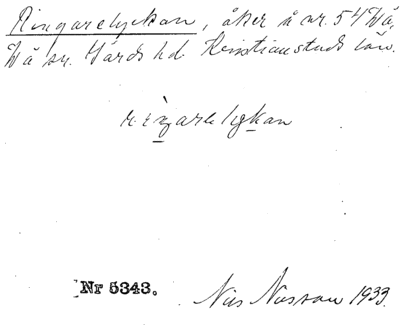 Ringarelyckan, åker å nr. 54 Vä,
Vä sn. Gärds hd. Kristianstads län.
riŋarelykan
Nr 5343.
Nils Nilsson 1933.